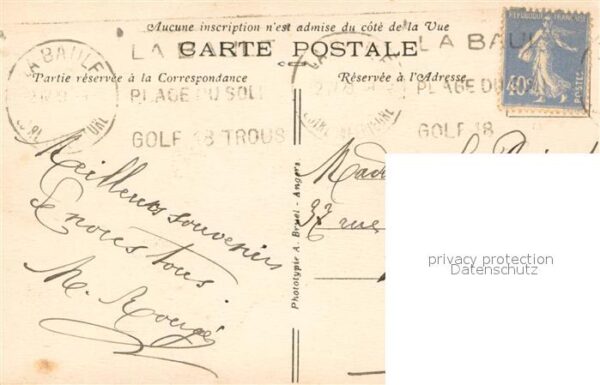 Aucune inscription n'est admise du côté de la Vue
CARTE POSTALE
Partie réservée à la Correspondance
Réservée à l'Adresse
LA BAULE
LA BAULE
PLAGE DU SOLEIL
GOLF 18 TROUS
LA BAUL
PLAGE
GOLF 18
RÉPUBLIQUE FRANÇAISE
40c
POSTES
Meilleurs souvenirs
de nous tous.
M. Rougé
Phototypie A. Bruel - Angers
Mad
33 rue
privacy protection
Datenschutz